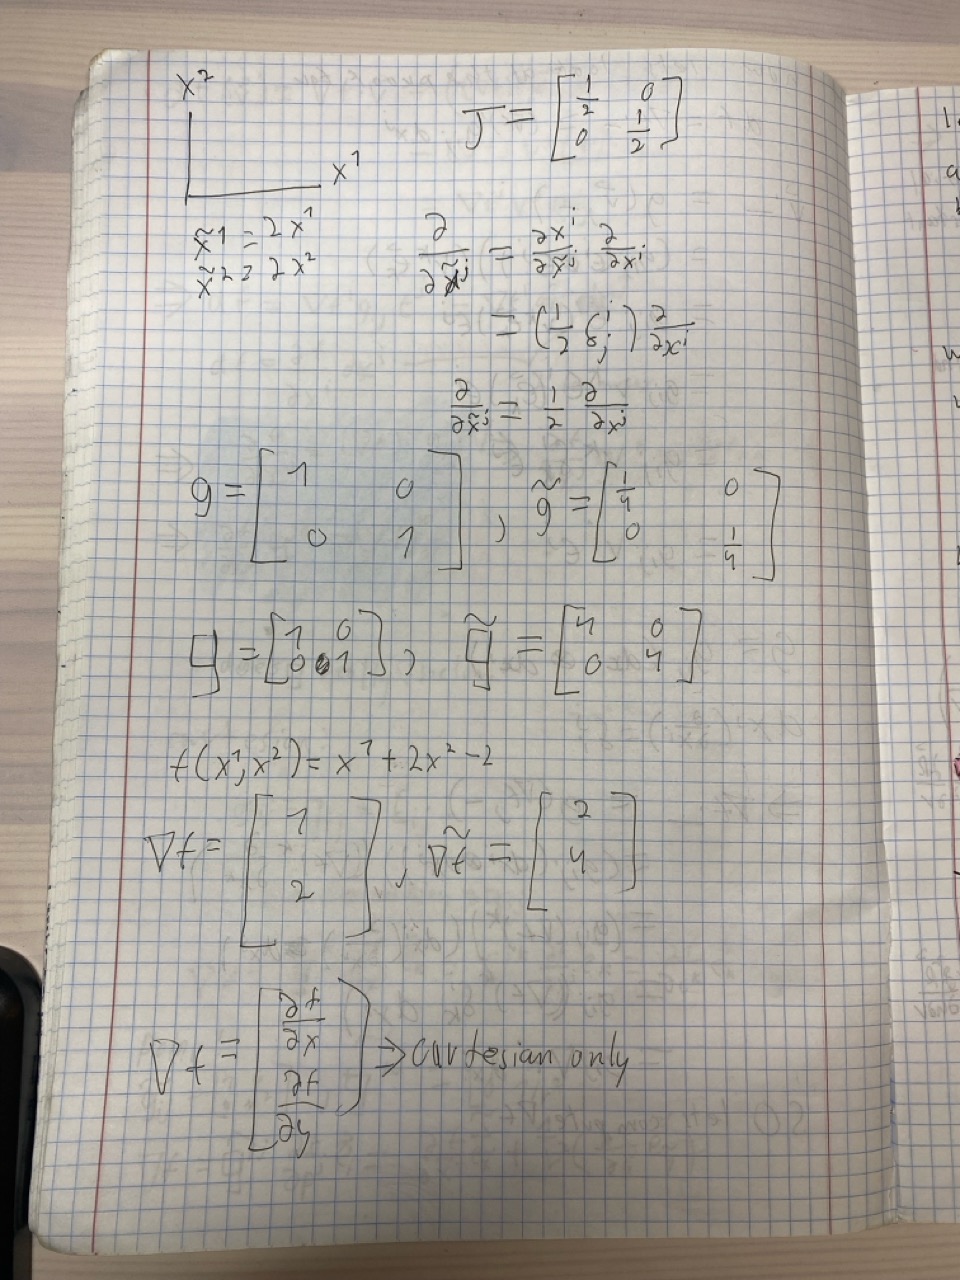 x²
x¹
J = [1/2 0
0 1/2]
x̃1 = 2x¹
x̃2 = 2x²
∂/∂x̃ʲ = ∂xⁱ/∂x̃ʲ ∂/∂xⁱ
= (1/2 δⁱⱼ) ∂/∂xⁱ
∂/∂x̃ʲ = 1/2 ∂/∂xʲ
g = [1 0
0 1] , g̃ = [1/4 0
0 1/4]
g = [1 0
0 1] , g̃ = [4 0
0 4]
f(x¹, x²) = x¹ + 2x² - 2
∇f = [1
2] , ∇̃f = [2
4]
∇f = [∂f/∂x
∂f/∂y] => cartesian only